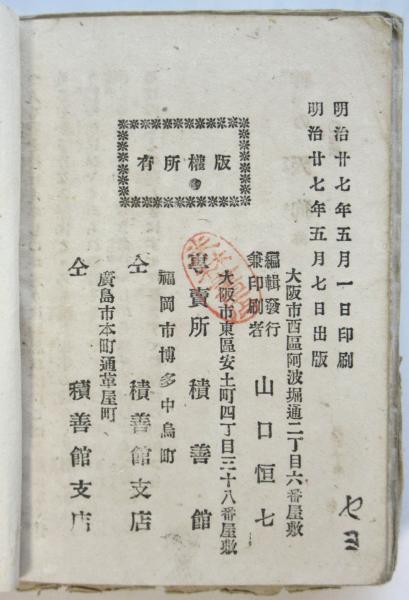 明治廿七年五月一日印刷
明治廿七年五月七日出版
版權所有
大阪市西區阿波堀通二丁目六番屋敷
編輯發行
兼印刷者
山口恒七
大阪市東區安土町四丁目三十八番屋敷
專賣所 積善館
福岡市博多中島町
仝 積善館支店
廣島市本町通革屋町
仝 積善館支店